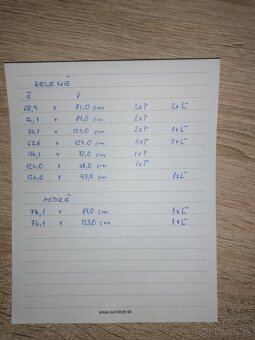 ZELENÉ
Š V
68,9 x 81,0 cm 2xP 2xĽ
74,1 x 81,0 cm 2xP
74,1 x 123,0 cm 2xP 1xĽ
68,8 x 123,0 cm 3xP 3xĽ
94,1 x 72,0 cm 1xP
124,0 x 48,0 cm 1xP
124,0 x 93,0 cm 1xĽ
MODRÉ
74,1 x 81,0 cm 1xĽ
74,1 x 123,0 cm 1xĽ
www.surveye.sk